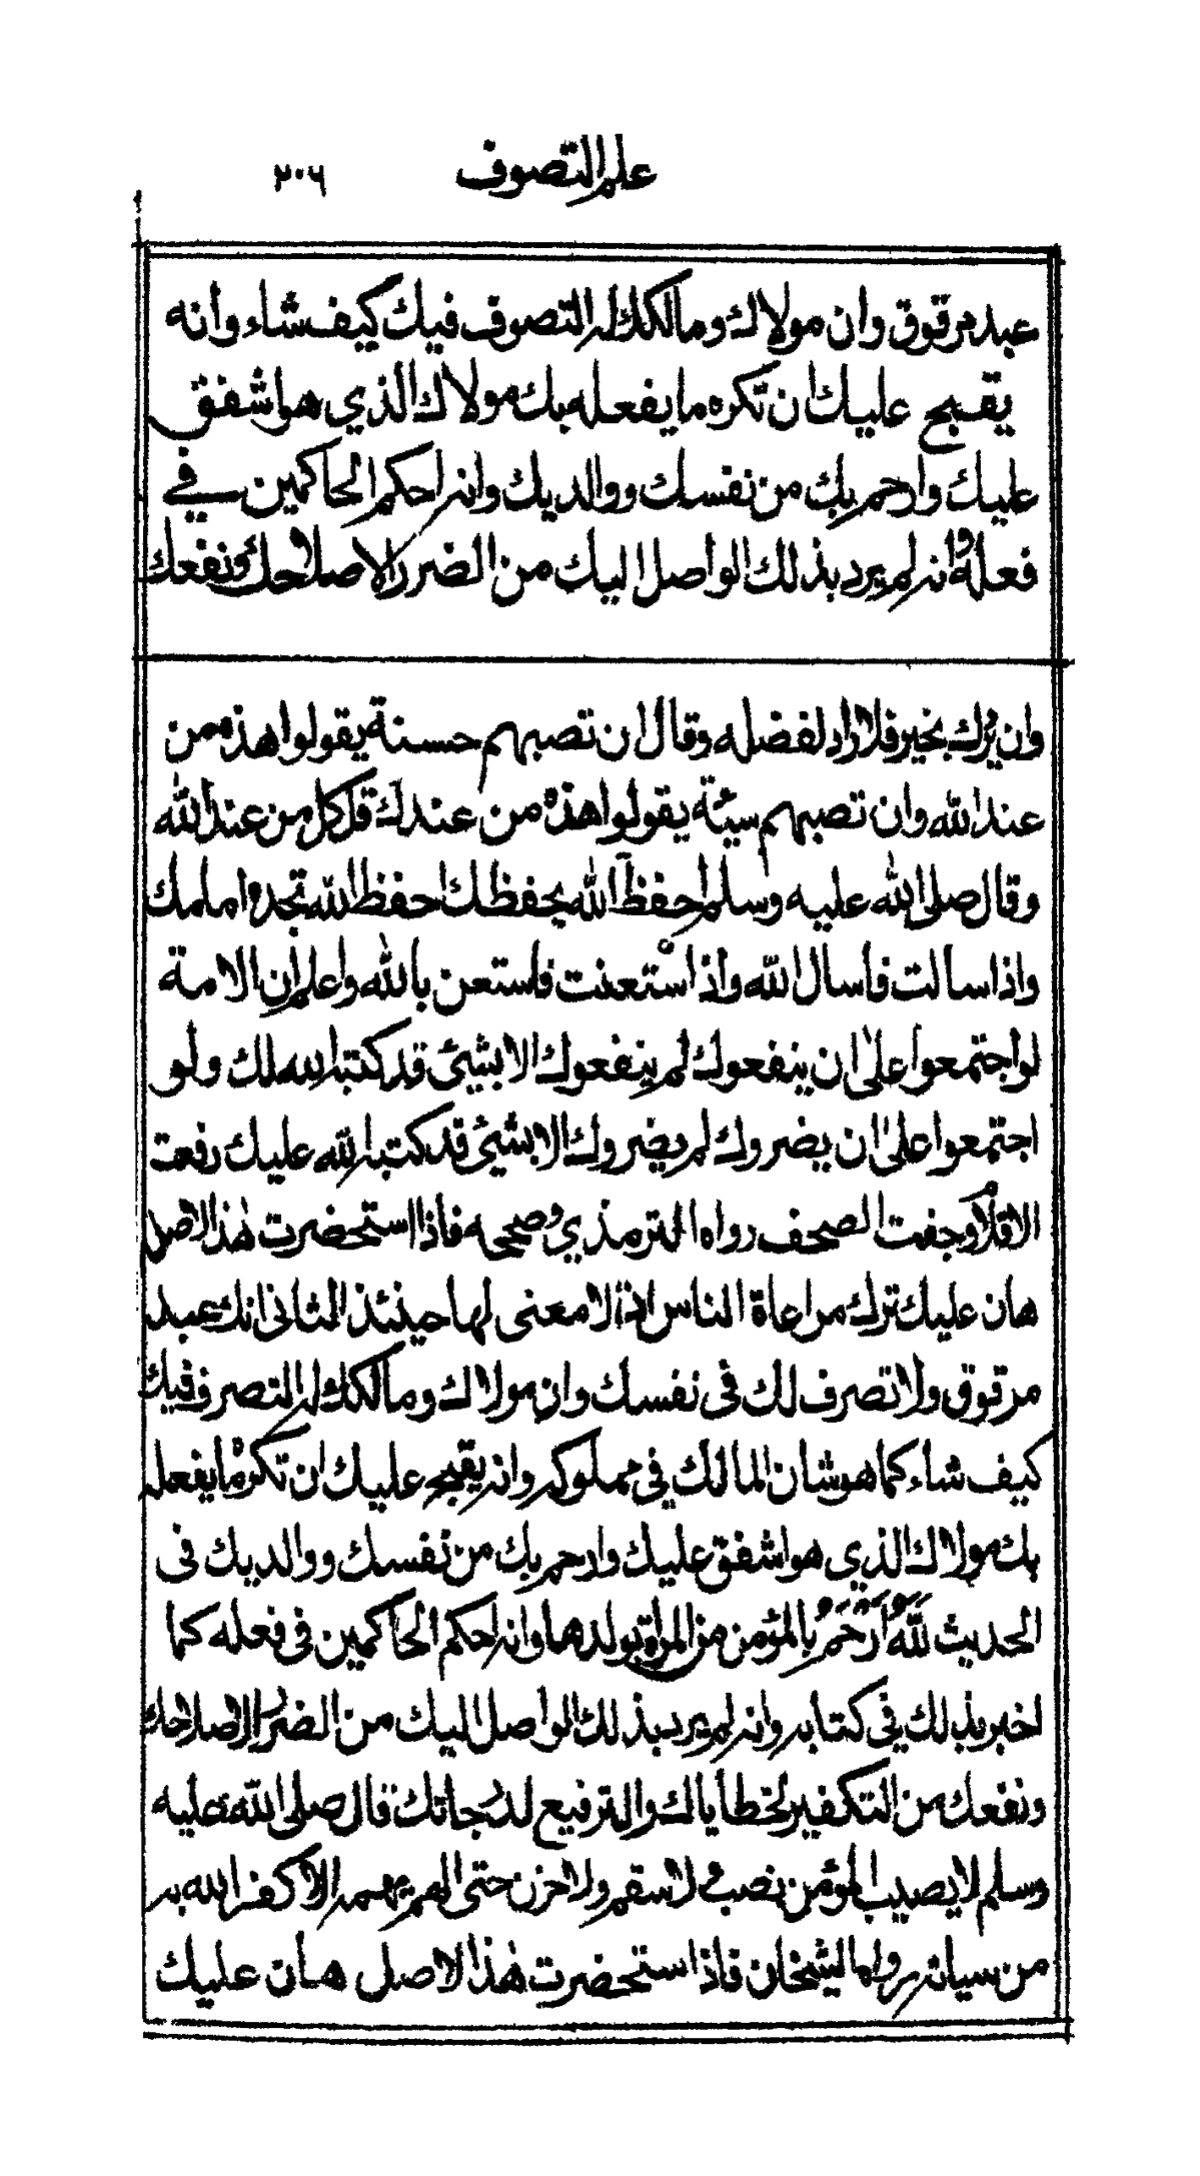 علم التصوف ٢٠٦
عبد مرقوق وان مولاك ومالكك له التصوف فيك كيف شاء وأنه
يقبح عليك ان تكره ما يفعله بك مولاك الذي هو اشفق
عليك وارحم بك من نفسك ووالديك وانه احكم الحاكمين في
فعله وانه لم يرد بذلك الواصل اليك من الضرر الا صلاحك ونفعك
وان يردك بخير فلا راد لفضله وقال ان تصبهم حسنة يقولوا هذه من
عند الله وان تصبهم سيئة يقولوا هذه من عندك قل كل من عند الله
وقال صلى الله عليه وسلم احفظ الله يحفظك احفظ الله تجده امامك
واذا سالت فأسال الله واذا استعنت فاستعن بالله واعلم ان الامة
لو اجتمعوا على ان ينفعوك لم ينفعوك الا بشيئ قد كتبه الله لك ولو
اجتمعوا على ان يضروك لم يضروك الا بشيئ قد كتبه الله عليك رفعت
الاقلام وجفت الصحف رواه الترمذي وصححه فاذا استحضرت هٰذا الاصل
هان عليك ترك مراعاة الناس اذ لا معنى لها حينئذ الثاني انك عبد
مرقوق ولا تصرف لك في نفسك وان مولاك ومالكك له التصرف فيك
كيف شاء كما هو شان المالك في مملوكه وانه يقبح عليك ان تكره ما يفعله
بك مولاك الذي هو اشفق عليك وارحم بك من نفسك ووالديك في
الحديث لَلّٰهُ أَرْحَمُ بِالمؤمن من المرأة بولدها وانه احكم الحاكمين في فعله كما
اخبر بذلك في كتابه وانه لم يرد بذلك الواصل اليك من الضرر الا صلاحك
ونفعك من التكفير لخطاياك والترفيع لدرجاتك قال صلى الله عليه
وسلم لا يصيب المؤمن نصب ولا سقم ولا حزن حتى الهم يهمه الا كفر الله به
من سياته رواه الشيخان فاذا استحضرت هٰذا الاصل هان عليك